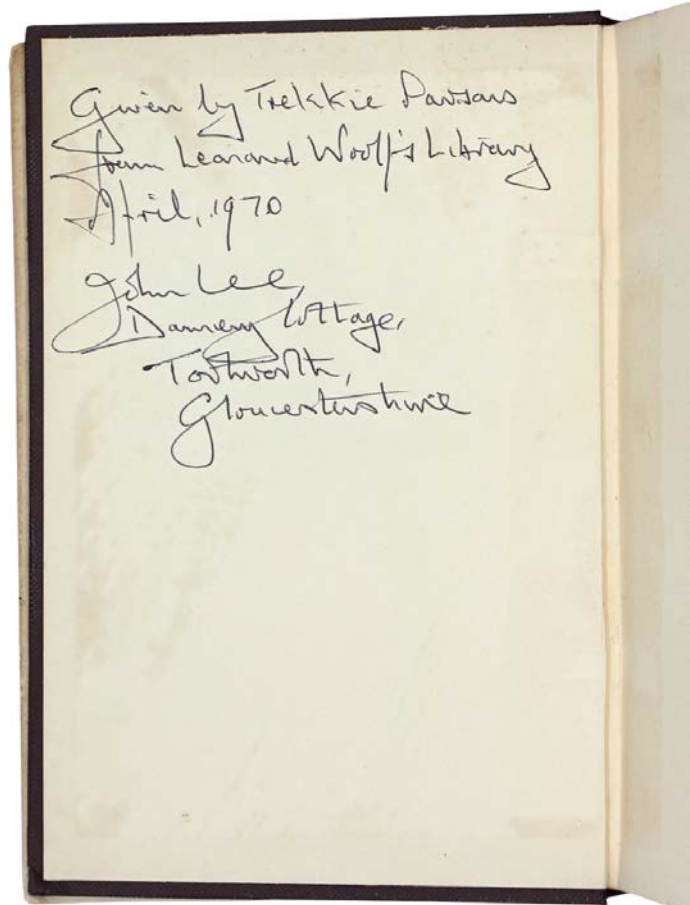 Given by Trekkie Parsons
from Leonard Woolf's Library
April, 1970
John Lee,
Damery Cottage,
Tortworth,
Gloucestershire